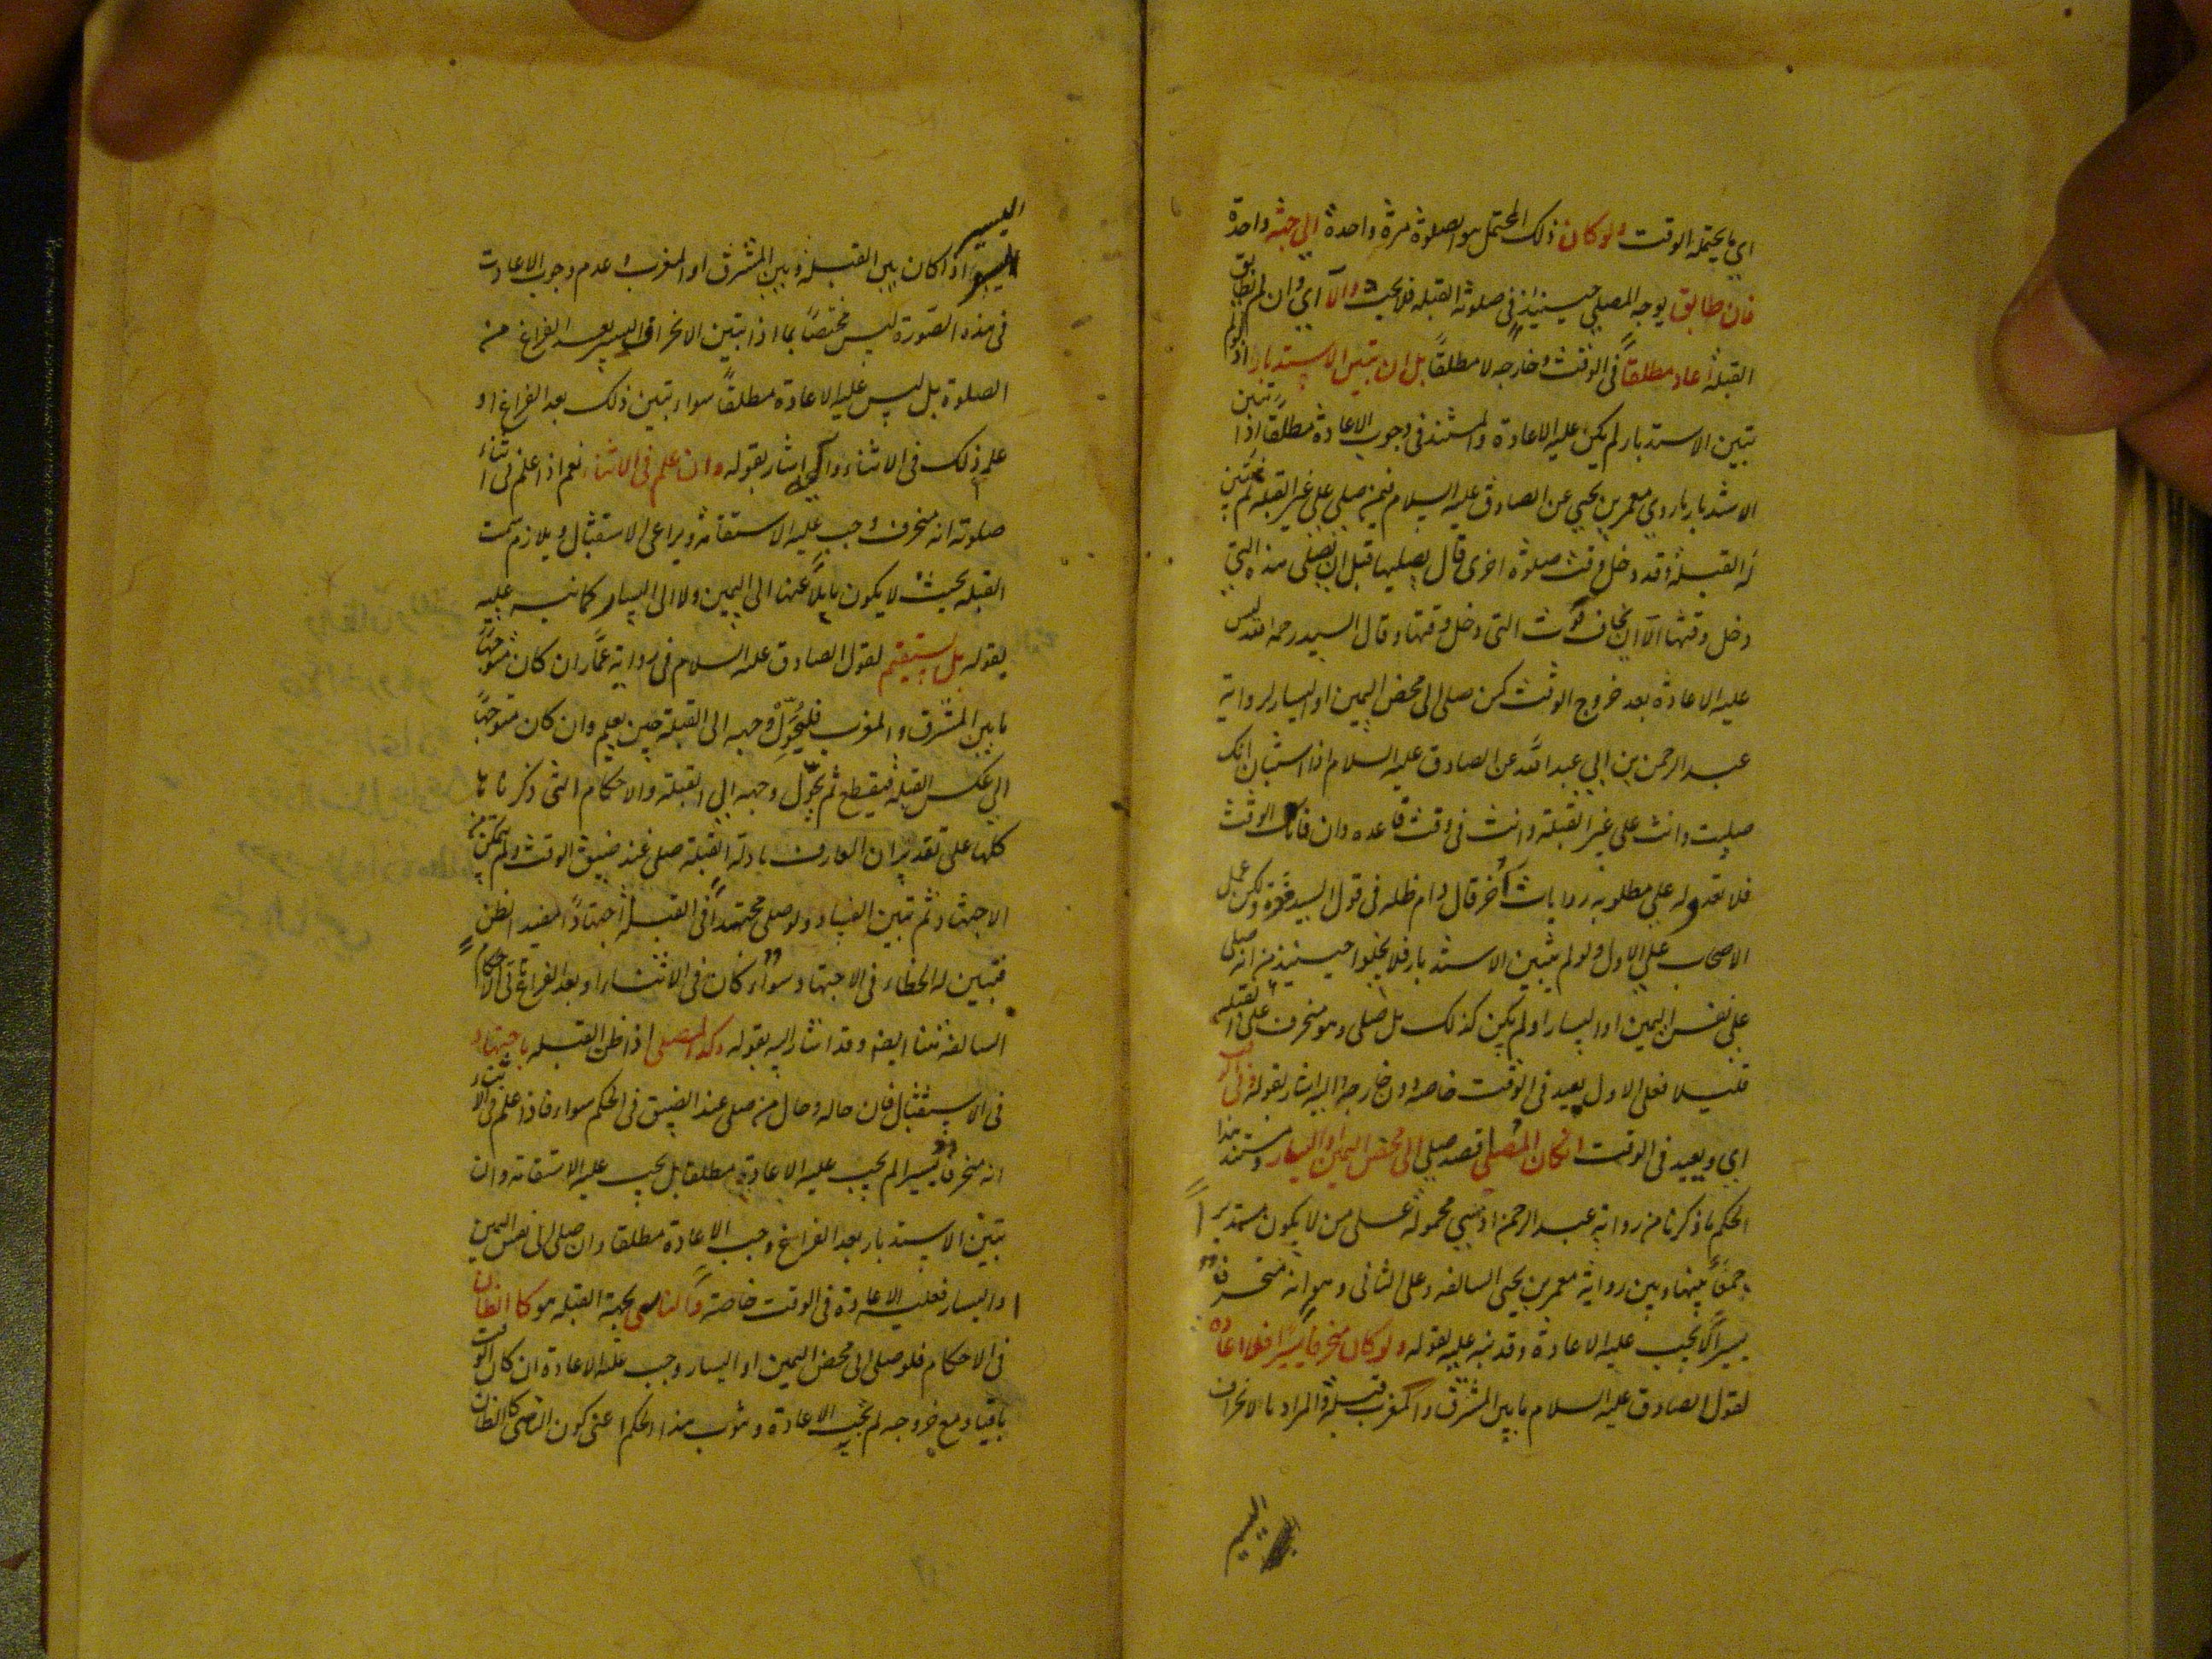 اي ما يحتمله الوقت ولو كان ذلك المحتمل هو الصلوة مرة واحدة الي جهة واحدة
فان طابق بوجه المصلي حينئذ في صلوته القبله فلا بحث والا اي وان لم يطابق
القبلة اعاد مطلقاً في الوقت وخارجه لا مطلقاً بل ان تبين الاستدبار اذ لو لم
تبين الاستدبار لم يكن عليه الاعادة والمستند في وجوب الاعادة مطلقا اذا تبين
الاستدبار ما روي معمر بن يحيي عن الصادق عليه السلام فيمن صلي علي غير القبله ثم تبين
له القبلة وقد دخل وقت صلوة اخري قال يصليها قبل ان يصلي هذه التي
دخل وقتها الا ان يخاف فوت التي دخل وقتها وقال السيد رحمه الله ليس
عليه الاعادة بعد خروج الوقت كمن صلي الي محض اليمين او اليسار لرواية
عبد الرحمن بن ابي عبد الله عن الصادق عليه السلام اذا استبان انك
صليت وانت علي غير القبلة وانت في وقت فاعده وان فاتك الوقت
فلا تعد وله علي مطلوبه روايات اخر قال دام ظله في قول السيد قوة ولكن عمل
الاصحاب علي الاول ولو لم يتبين الاستدبار فلا يخلوا حينئذ من انه صلي
علي نفس اليمين او اليسار او لم يكن كذلك بل صلي وهو منحرف علي القبلة
قليلا فعلي الاول يعيد في الوقت خاصه دون خارجه واليه اشار بقوله وفي الوقت
اي ويعيد في الوقت ان كان المصلي قصد صلي الي محض اليمين او اليسار ومستند هذا
الحكم ما ذكرنا من رواية عبد الرحمن اذ هي محمولة علي من لا يكون مستدبرا
جمعاً بينها وبين رواية معمر بن يحيي السالفه وعلي الثاني وهو انه منحرف
يسيراً لا يجب عليه الاعادة وقد نبه عليه بقوله ولو كان منحرفا يسيرا فلا اعادة
لقول الصادق عليه السلام ما بين المشرق والمغرب قبلة والمراد بالانحراف
اليسير
اليسير
اذا كان بين القبلة وبين المشرق او المغرب وعدم وجوب الاعادت
في هذه الصورة ليس مختصاً بما اذا تبين الانحراف اليسير بعد الفراغ من
الصلوة بل ليس عليه الاعادة مطلقاً سواء تبين ذلك بعد الفراغ او
علم ذلك في الاثناء واليه اشار بقوله وان علم في الاثناء نعم اذا علم في اثناء
صلوته انه منحرف وجب عليه الاستقامة ويراعي الاستقبال ويلازم سمت
القبلة بحيث لا يكون مايلاً عنها الي اليمين ولا الي اليسار كما نبه عليه
بقوله بل يستقيم لقول الصادق عليه السلام في رواية عمّار ان كان متوجهاً
ما بين المشرق والمغرب فليحوّل وجهه الي القبلة حين يعلم وان كان متوجهاً
الي عكس القبلة فيقطع ثم يحوّل وجهه الي القبلة والاحكام التي ذكرناها
كلها علي تقدير ان العارف بادلة القبلة صلي عند ضيق الوقت ولم يتمكن من
الاجتهاد ثم تبين الفساد ولو صلي مجتهداً في القبلة اجتهاداً مفيد الظن
فتبين له الخطاء في الاجتهاد سواء كان في الاثناء او بعد الفراغ تاتي الاحكام
السالفة هنا ايضا وقد اشار اليه بقوله وكذا المصلي اذا ظن القبلة باجتهاد
في الاستقبال فان حاله وحال من صلي عند الضيق في الحكم سواء فاذا علم في الاثناء
انه منحرف يسيرا لم يجب عليه الاعادة مطلقا بل يجب عليه الاستقامة وان
تبين الاستدبار بعد الفراغ وجب الاعادة مطلقا وان صلي الي نفس اليمين
او اليسار فعليه الاعادة في الوقت خاصة والناسي بجهة القبلة هو كالظان
في الاحكام فلو صلي الي محض اليمين او اليسار وجب عليه الاعادة ان كان الوقت
باقيا ومع خروجه لم يجب الاعادة وثبوت هذا الحكم اعني كون الناسي كالظان